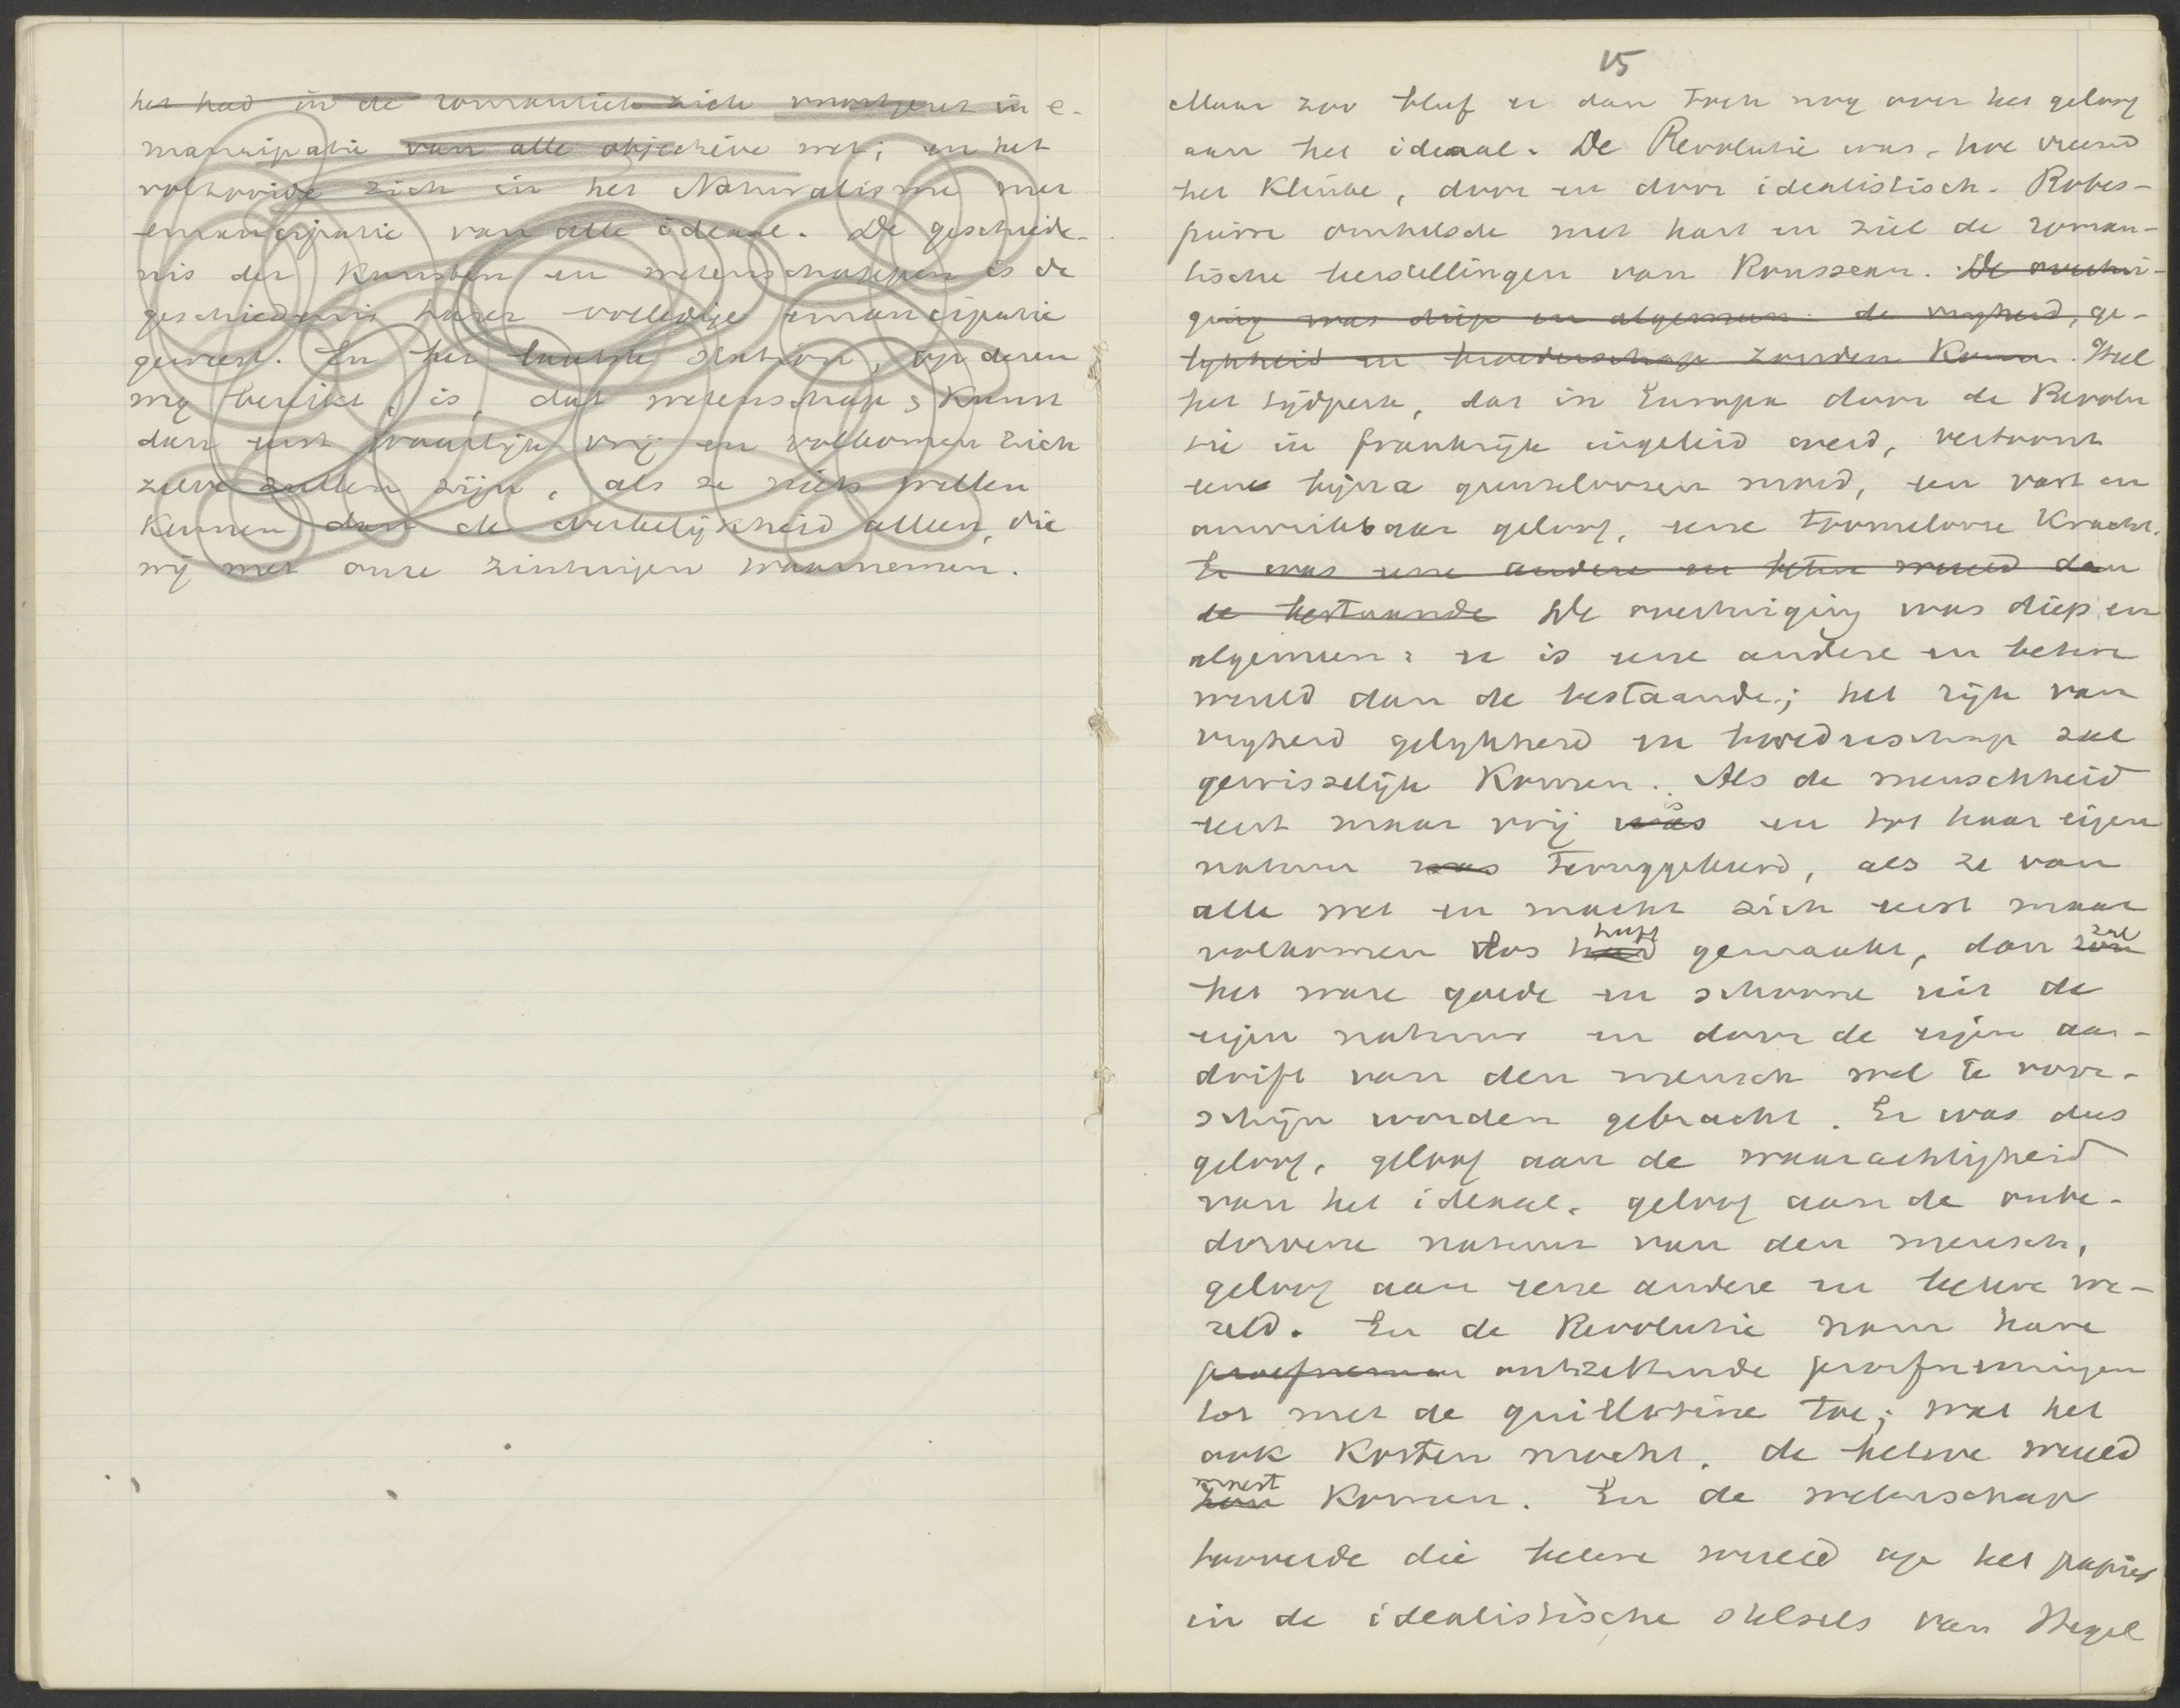 het had in de romantiek zich voortgezet in e-
mancipatie van alle objectieve wet; en het
voltooide zich in het Naturalisme met
emancipatie van alle ideaal. De geschiede-
nis der Kunsten en wetenschappen is de
geschiedenis harer volledige emancipatie
geweest. En het laatste station, op deren
weg bereikt, is, dat wetenschap & Kunst
dan eerst waarlijk vrij en volkomen zich
zelve zullen zijn, als ze niets willen
Kennen dan de werkelijkheid alleen, die
wij met onze zintuigen waarnemen.
15
Maar zoo bleef er dan toch nog over het geloof
aan het ideaal. De Revolutie was, hoe vreemd
het Klinke, door en door idealistisch. Robes-
pierre omhelsde met hart en ziel de roman-
tische herstellingen van Rousseau. De overtui-
ging was diep en algemeen: de vrijheid, ge-
lijkheid en broederschap zouden Komen. Heel
het tijdperk, dat in Europa door de Revolu
tie in frankrijk ingeleid werd, vertoont
eene bijna grenzelooze moed, een vast en
onwrikbaar geloof, eene tomelooze Kracht.
Er was eene andere en betere wereld dan
de bestaande De overtuiging was diep en
algemeen: er is eene andere en betere
wereld dan de bestaande; het rijk van
vrijheid gelijkheid en broederschap zal
gewisselijk Komen. Als de menschheid
eerst maar vrij was is en tot haar eigen
natuur was teruggekeerd, als ze van
alle wet en macht zich eerst maar
volkomen los had heeft gemaakt, dan zou zal
het ware goede en schoone uit de
eigen natuur en door de eigen aan-
drift van den mensch wel te voor-
schijn worden gebracht. Er was dus
geloof, geloof aan de waarachtigheid
van het ideaal, geloof aan de onbe-
dorvene natuur van den mensch,
geloof aan eene andere en betere we-
reld. En de Revolutie nam hare
proefnemen ontzettende proefnemingen
tot met de guillotine toe; wat het
ook Kosten mocht, de betere wereld
zou moest Komen. En de wetenschap
bouwde die betere wereld op het papier
in de idealistische stelsels van Hegel